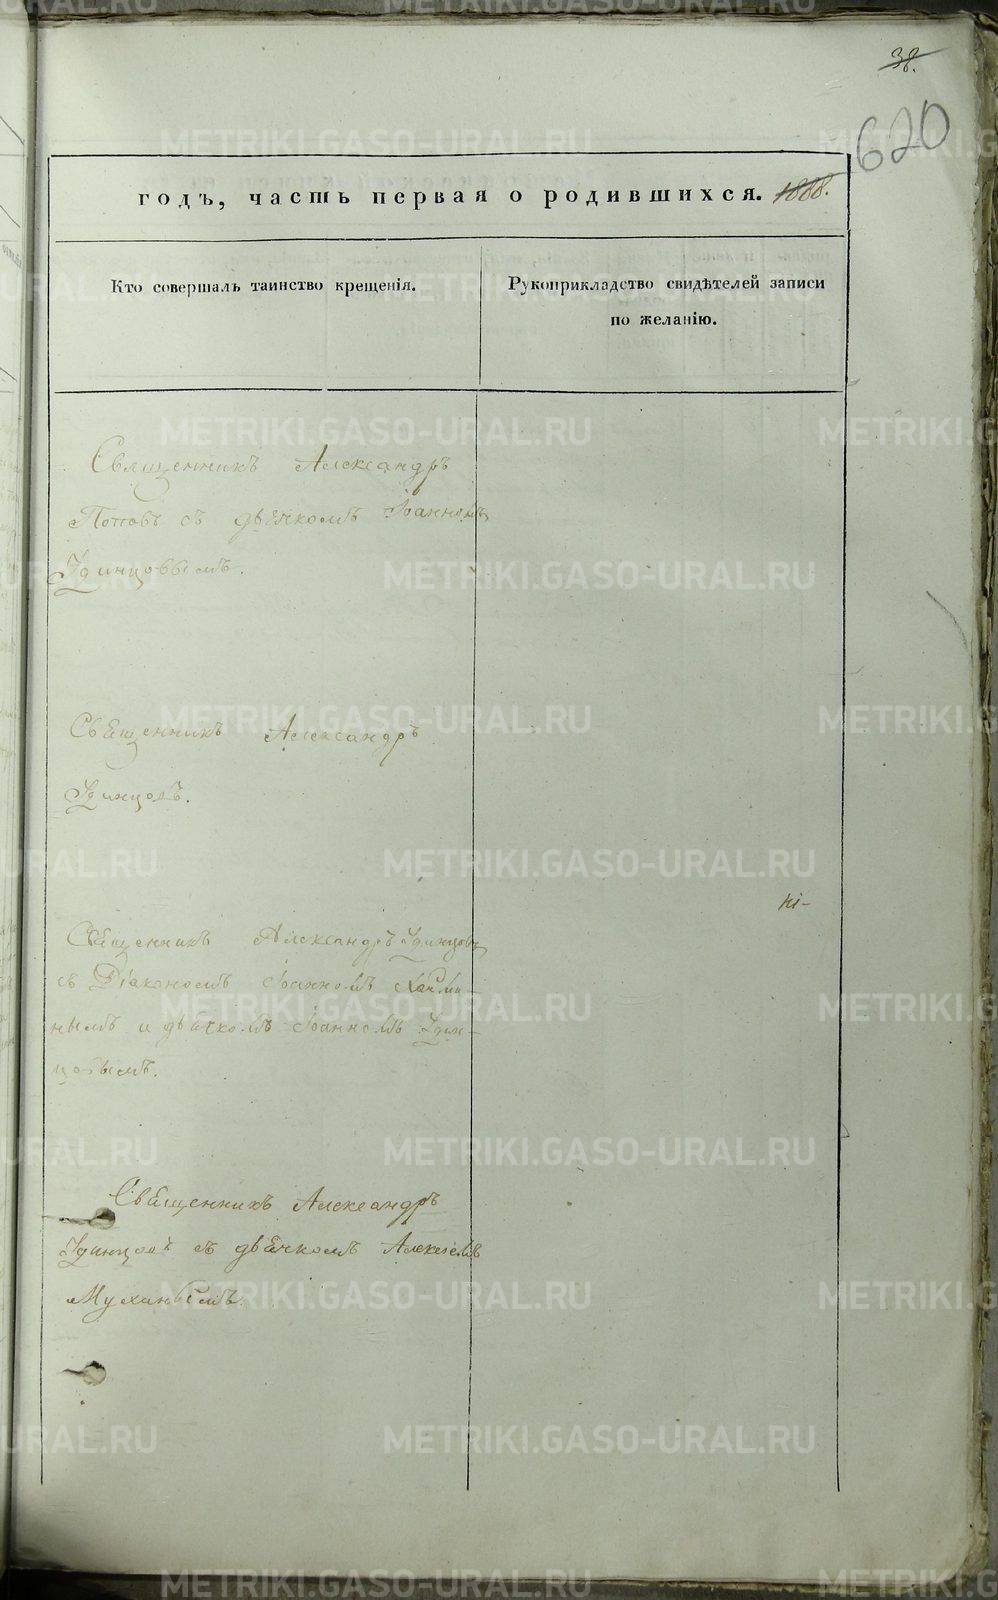 38.
620
годъ, часть первая о родившихся. 1888.
Кто совершалъ таинство крещенія.
Рукоприкладство свидѣтелей записи
по желанію.
Священникъ Александръ
Поповъ съ дьячкомъ Іоанномъ
Удинцовымъ.
Священникъ Александръ
Удинцовъ.
Священникъ Александръ Удинцовъ
съ Діакономъ Іоанномъ
нымъ и дьячкомъ Іоанномъ Удин-
цовымъ.
Священникъ Александръ
Удинцовъ съ дьячкомъ Алексѣемъ
Мухинымъ.
METRIKI.GASO-URAL.RU